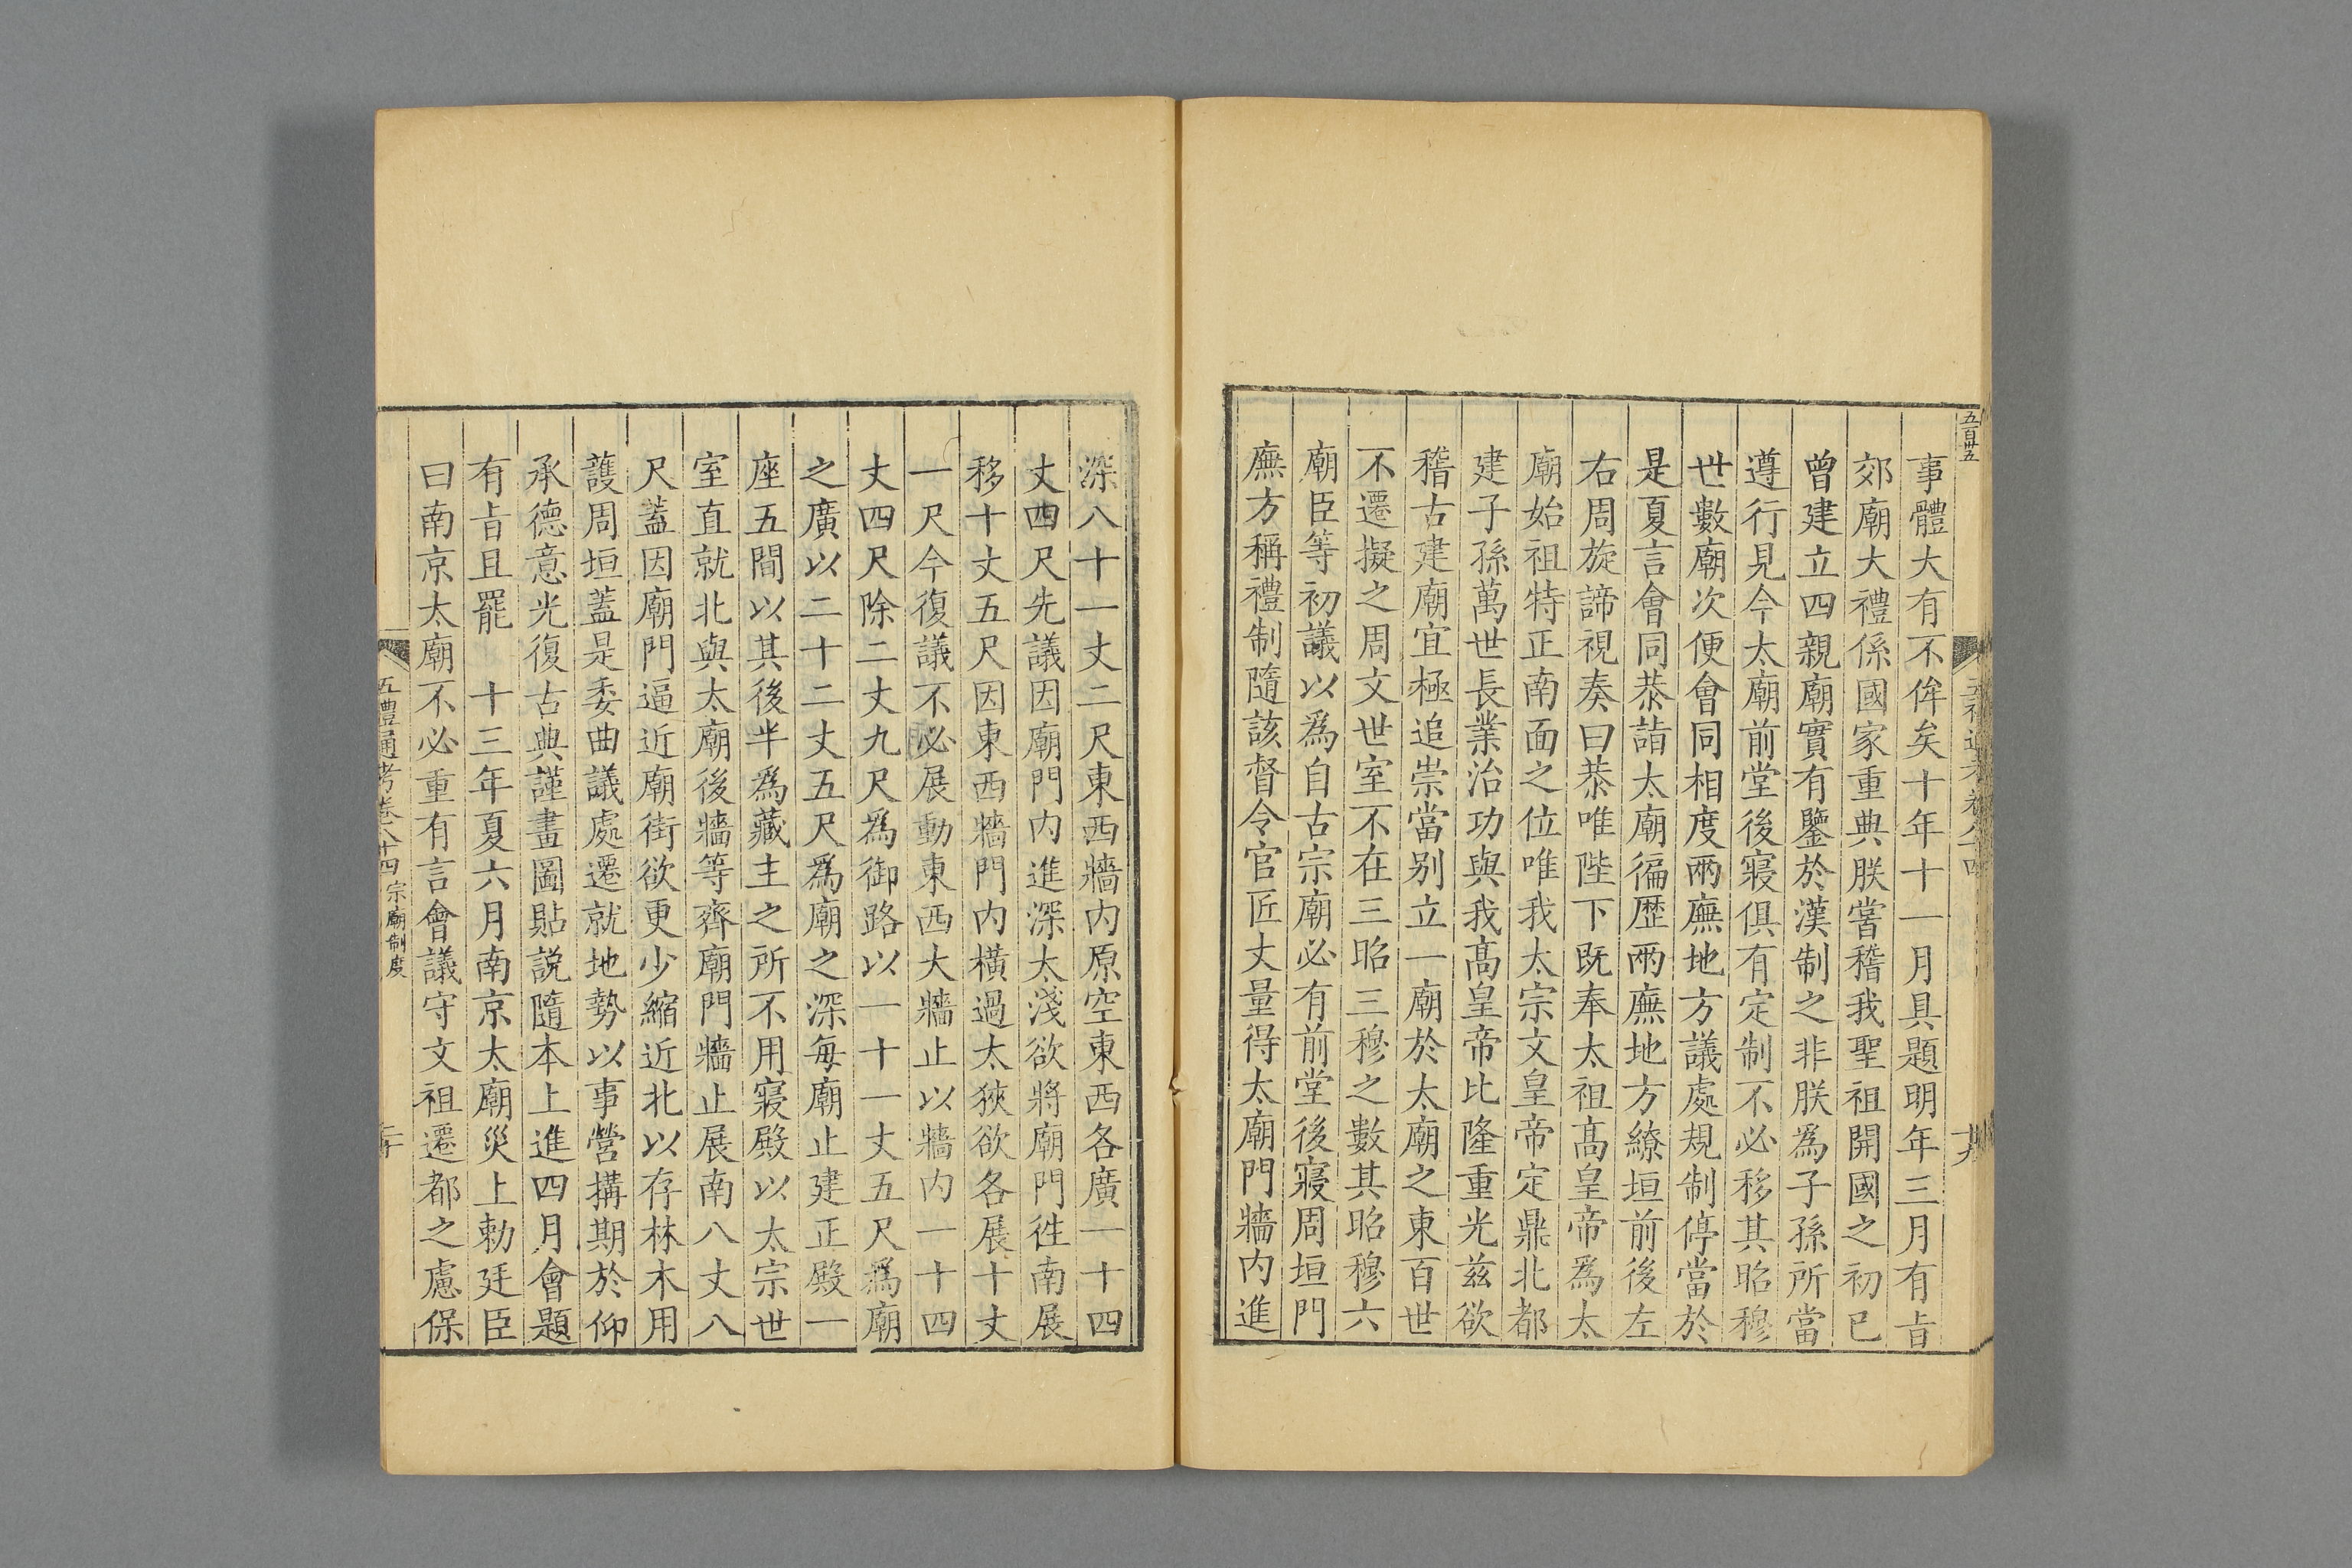 五百廿五
事體大有不侔矣十年十一月具題明年三月有旨
郊廟大禮係國家重典朕嘗稽我聖祖開國之初已
曾建立四親廟實有鑒於漢制之非朕為子孫所當
遵行見今太廟前堂後寢俱有定制不必移其昭穆
世數廟次便會同相度兩廡地方議處規制停當於
是夏言會同恭詣太廟徧歷兩廡地方繚垣前後左
右周旋諦視奏曰恭唯陛下既奉太祖高皇帝為太
廟始祖特正南面之位唯我太宗文皇帝定鼎北都
建子孫萬世長業治功與我高皇帝比隆重光兹欲
稽古建廟宜極追崇當別立一廟於太廟之東百世
不遷擬之周文世室不在三昭三穆之數其昭穆六
廟臣等初議以為自古宗廟必有前堂後寢周垣門
廡方稱禮制隨該督令官匠丈量得太廟門牆內進
深八十一丈二尺東西牆內原空東西各廣一十四
丈四尺先議因廟門內進深太淺欲將廟門徃南展
移十丈五尺因東西牆門內橫過太狹欲各展十丈
一尺今復議不必展動東西大牆止以牆內一十四
丈四尺除二丈九尺為御路以一十一丈五尺為廟
之廣以二十二丈五尺為廟之深每廟止建正殿一
座五間以其後半為藏主之所不用寢殿以太宗世
室直就北與太廟後牆等齊廟門牆止展南八丈八
尺蓋因廟門逼近廟街欲更少縮近北以存林木用
護周垣蓋是委曲議處遷就地勢以事營搆期於仰
承德意光復古典謹畫圖貼説隨本上進四月會題
有旨且罷　十三年夏六月南京太廟災上勅廷臣
曰南京太廟不必重有言會議守文祖遷都之慮保
五禮通考卷八十四 宗廟制度 二十